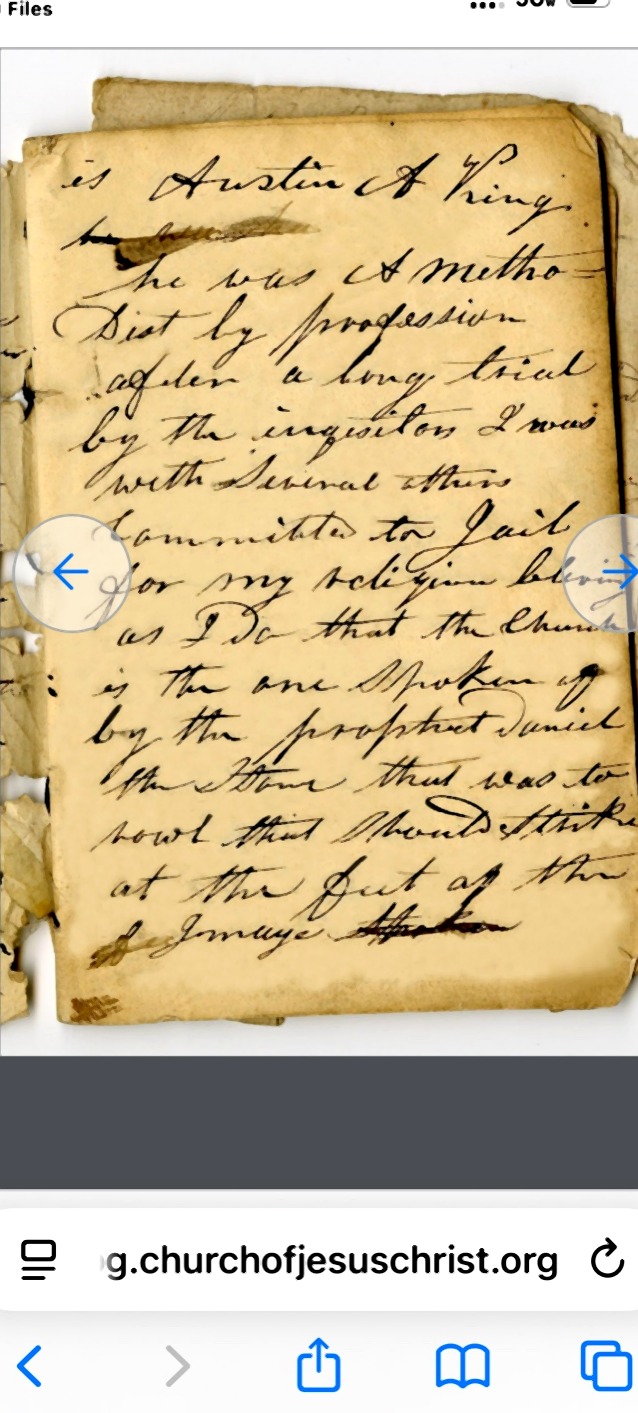 Files
50w
is Austin A King
he
he was A metho=
Dist by profession
after a long trial
by the inqisitors I was
with Several others
Committed to Jail
for my religion beleiving
as I Do that the Church
is the one Spoken off
by the prophet Daniel
the Stone that was to
rowl that Should Strike
at the feet of the
of Image Spoken
g.churchofjesuschrist.org